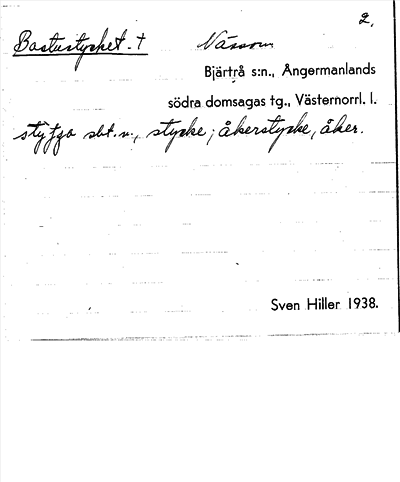 2.
Bastustycket. † Nässom
Bjärtrå s:n., Ångermanlands
södra domsagas tg., Västernorrl. l.
sbt. n., stycke; åkerstycke, åker.
Sven Hiller 1938.